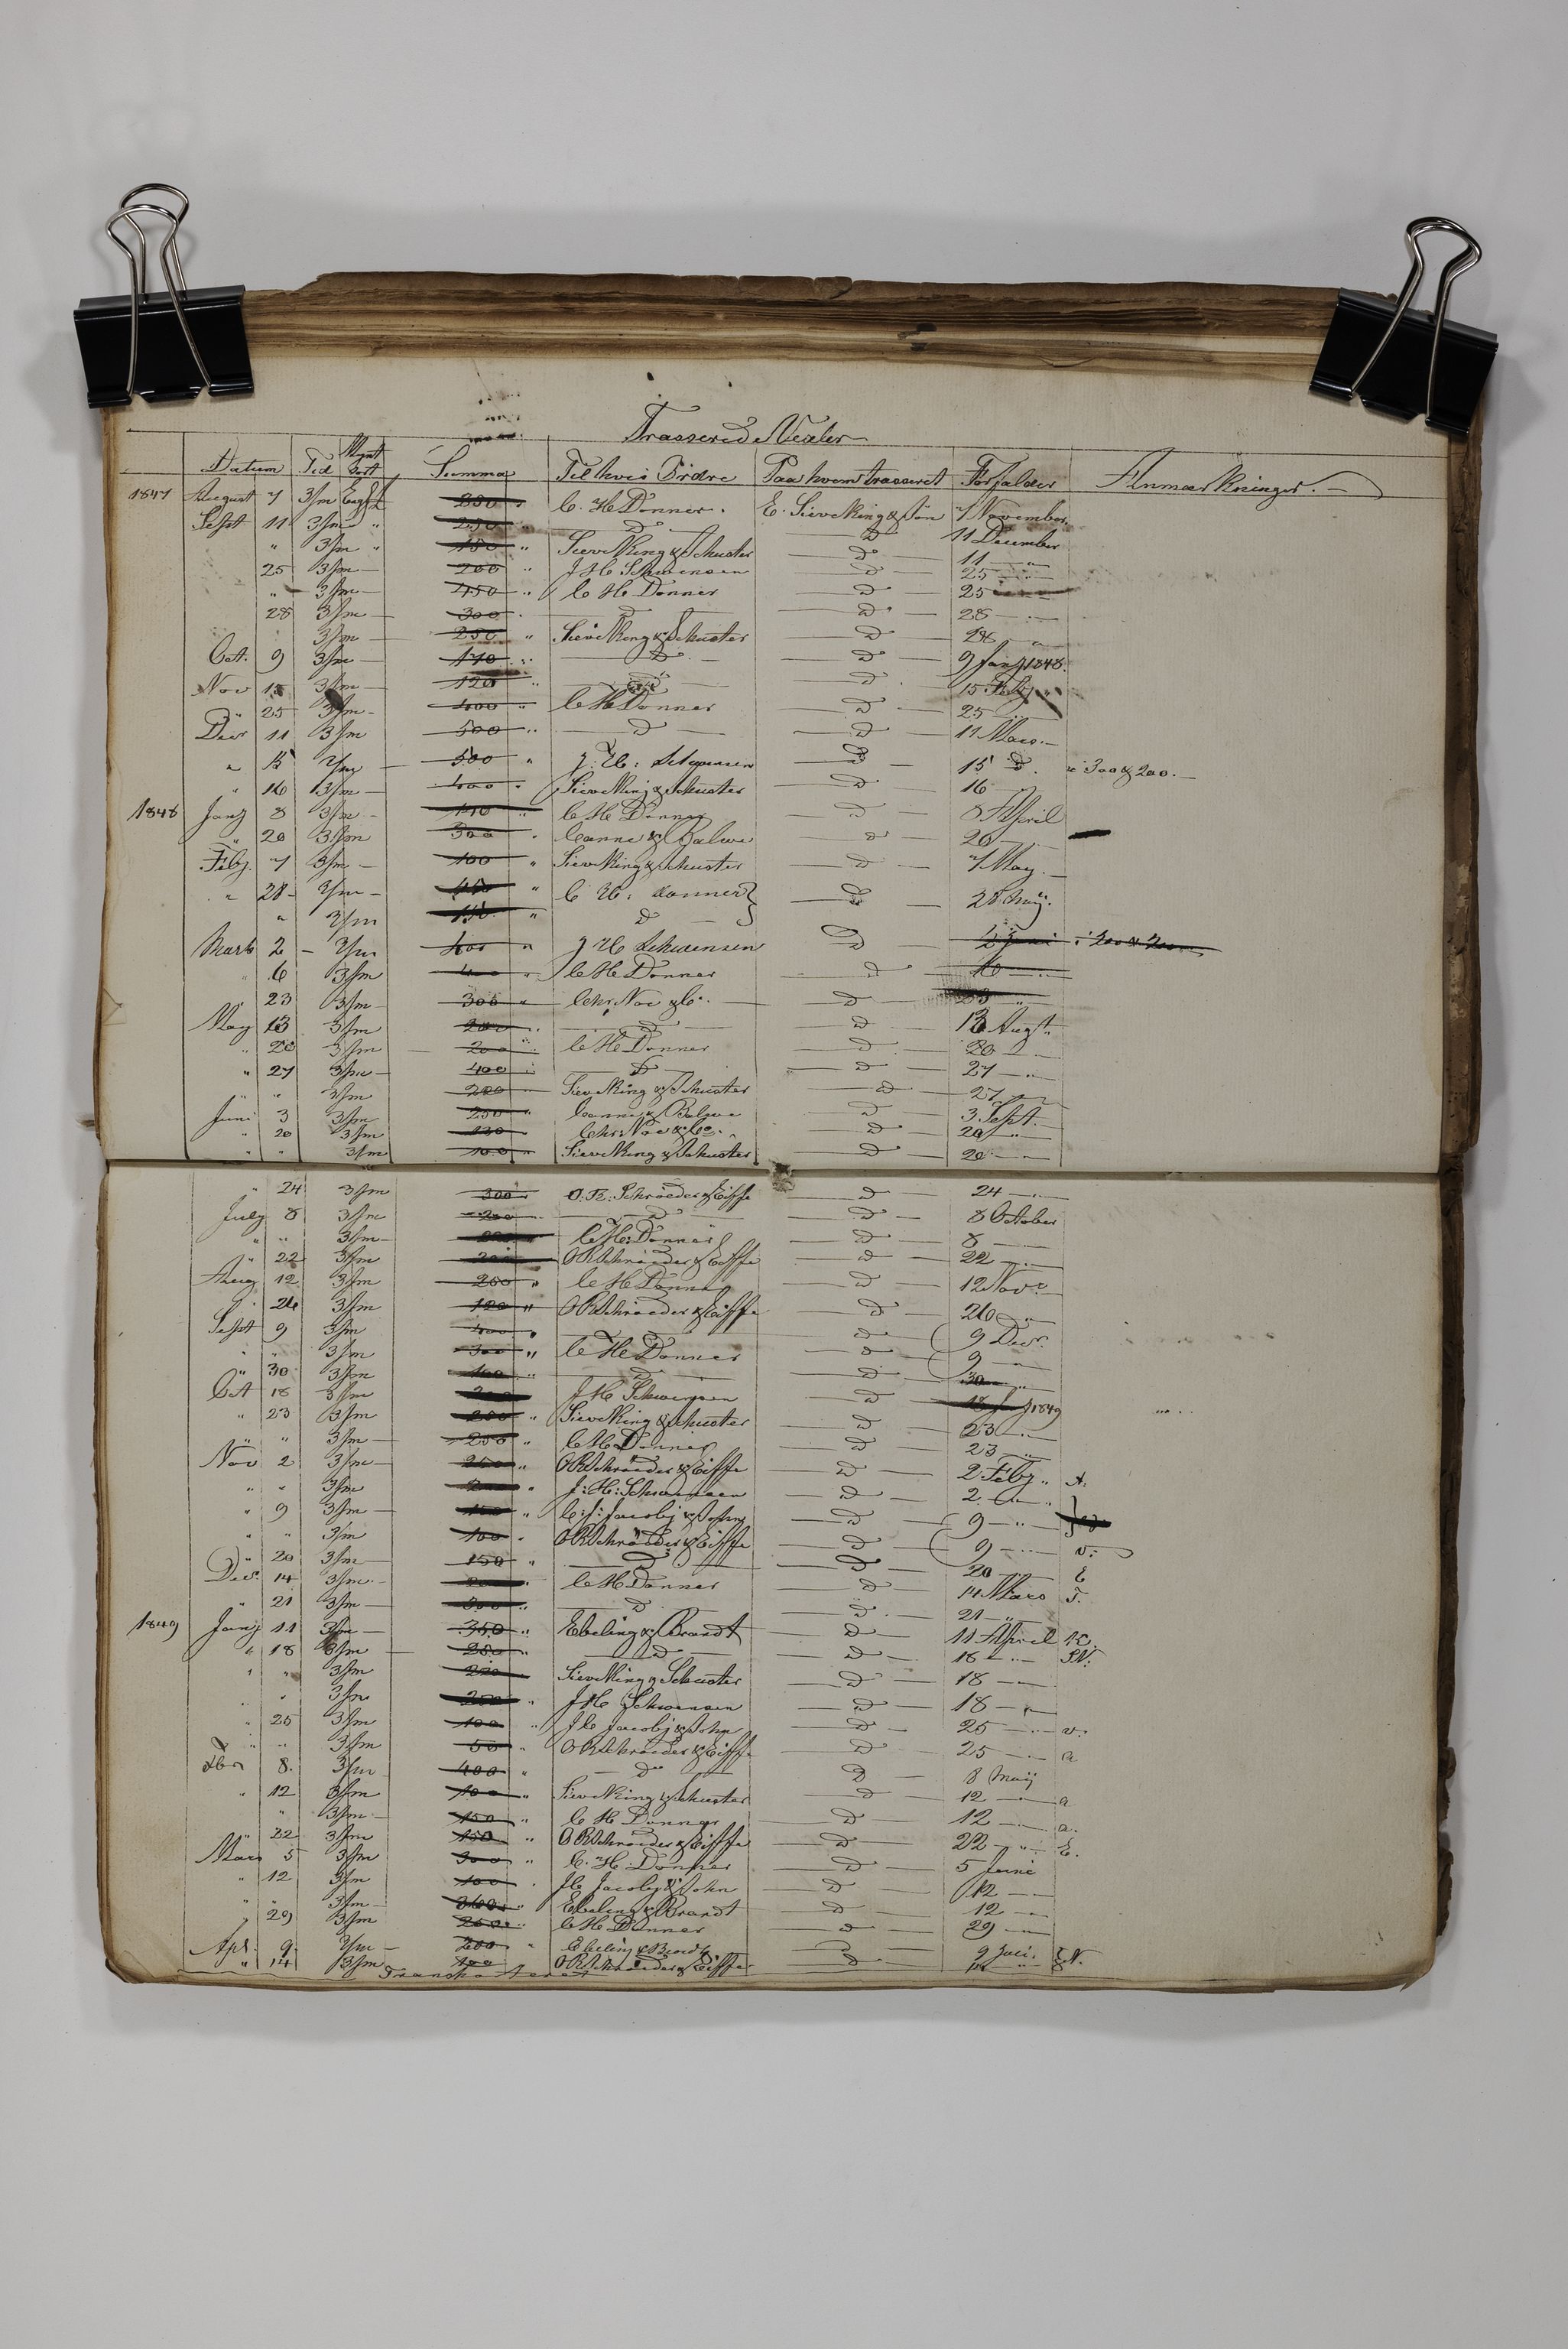 Trasserede Vexler
Datum Tid Mynt Sort Summa Til hvis Ordre Paa hvem trasseret Forfalder Anmærkninger.
1847 August 7 3/m Engl £ 250 " C. H. Donner. E. Sieveking & Søn 7 November
Sept 11 3/m " 250 " Do d 11 December
" 3/m " 150 " Sieveking & Schuster d 11 "
25 3/m 200 " J H Schwensen d 25 "
" 3/m 450 " C H Donner d 25
28 3/m 300 " d d 28 "
3/m 250 " Sieveking & Schuster d 28 "
Oct. 9 3/m 170 " Do d 9 Janj 1848.
Nov 15 3/m 120 " d d 15 Febj "
" 25 3/m 400 " C H Donner d 25
Decr 11 3/m 500 " d d 11 Mars.
" 15 3/m 500 " J. H. Schwensen d 15 d. 300 & 200.
" 16 3/m 400 " Sieveking & Schuster d 16
1848 Janj 8 3/m " C H Donner d 8 April
" 20 3/m 300 " Canne & Balwe d 20
Febj. 7 3/m 100 " Sieveking & Schuster d 7 May.
" 28 3/m 450 " C H. Donner d 28 May.
" 3/m " d
Marts 2 3/m 400 " J H Schwensen d
" 6 3/m 400 " C H Donner d
23 3/m 300 " Chr. Noe & C. d
May 13 3/m 200 " d d 13 Augt.
" 20 3/m 200 " C H Donner d 20
" 27 3/m 400 " d d 27 "
" " 3/m 200 Sieveking & Schuster d 27
Juni 3 3/m 250 " Canne & Balwe d 3 Sept.
" 20 3/m 130 " Chr. Noe & Co. d 20 "
" " 3/m 100 " Sieveking & Schuster d 20
" 24 3/m 300 " O. R. Schrøeder & Eiffe d 24
July 8 3/m 200 d d 8 October
" " 3/m C. H. Donner d 8
" 22 3/m O R Schrøeder & Eiffe d 22
Aug 12 3/m 200 " C H Donner d 12 Nov.
" 26 3/m 120 " O R Schrøeder & Eiffe d 26 "
Sept 9 3/m 400 " d d 9 Decr.
" " 3/m 300 " C H Donner d 9
" 30 3/m 100 " d d 30 "
Oct 18 3/m J H Schwensen d 1849
" 23 3/m 250 " Sieveking & Schuster d 23
" " 3/m 250 " C H Donner d 23
Nov 2 3/m 250 " O R Schrøeder & Eiffe d 2 Febj " A.
" " 3/m " J. H. Schwensen d 2 "
" 9 3/m 150 " C. J. Jacobj & d 9 "
" " 3/m 100 " O R Schrøeder & Eiffe d 9 v.
" 20 3/m 150 " d d 20 E
Decr. 14 3/m " C H Donner d 14 Mars T.
" 21 3/m 300 " d d 21 "
1849 Janj 11 3/m 350 " Ebeling & Brandt d 11 April
" 18 3/m 250 " d d 18
" " 3/m 220 Sieveking & Schuster d 18
" " 3/m 250 " J H Schwensen d 18
" 25 3/m 100 " J C Jacobj & John d 25 v.
" " 3/m 50 " O R Schrøeder & Eiffe d 25 a
8. 3/m 400 " d d 8 Maij
" 12 3/m 100 " Sieveking & Schuster d 12 a
" 3/m 150 " C H Donner d 12 a.
" 22 3/m 150 " O R Schrøeder & Eiffe d 22 " E.
Mars 5 3/m 300 " C. H. Donner d 5 Juni
" 12 3/m 100 " J C Jacobj & John d 12
" " 3/m " Ebeling & Brandt d 12
" 29 3/m C H Donner d 29
Apl. 9 3/m 200 " Ebeling & Brandt d 9 Juli. N.
" 14 3/m 100 O R Schrøeder & Eiffe d 14 "
Transporteret